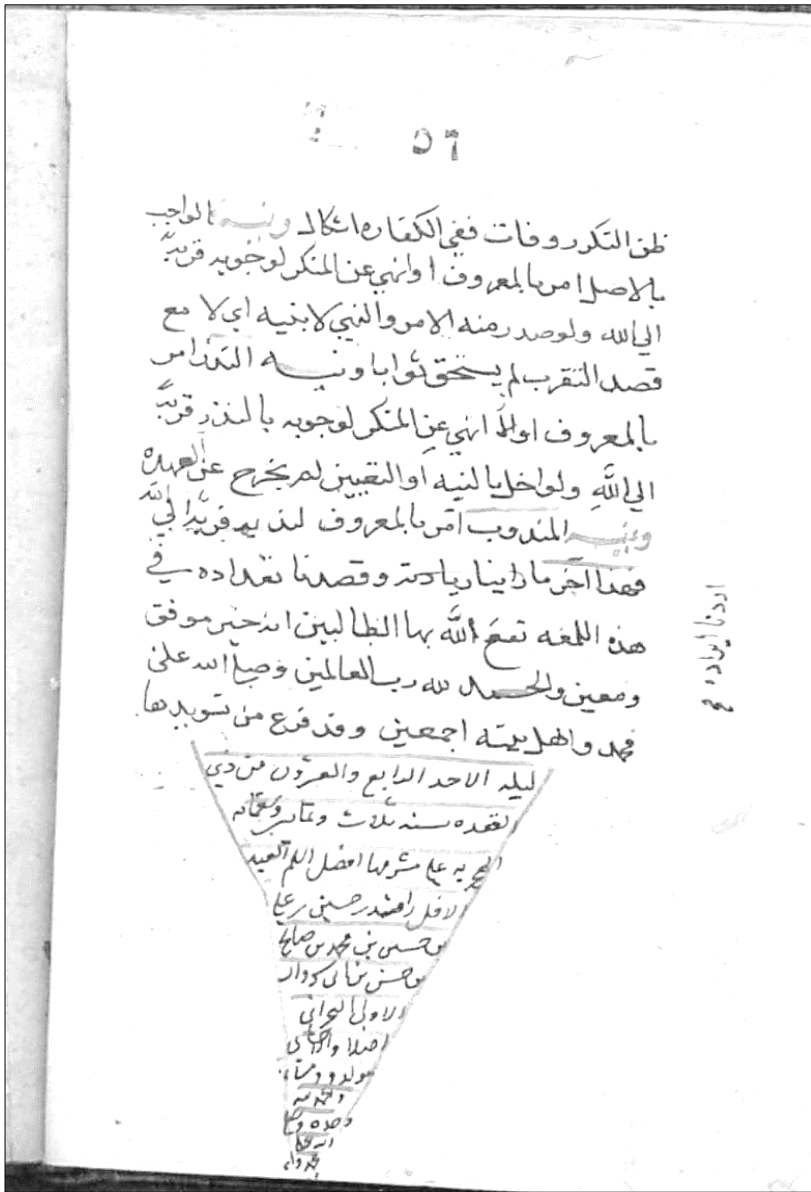 ٥٦
ظن التكرر وفات ففي الكفاره اشكال ونية الواجب
بالاصل امر بالمعروف او انهي عن المنكر لوجوبه قربة
الي الله ولو صدر منه الامر والنهي لا بنيه اي لا مع
قصد التقرب لم يستحق ثوابا ونيه النذر امر
بالمعروف او انهي عن المنكر لوجوبه بالنذر قربة
الي الله ولو اخل بالنيه او التعيين لم يخرج عن العهده
ونية المندوب آمر بالمعروف لندبه قربة الي الله
فهذا آخر ما راينا وقصدنا تعداده في
هذه اللمعه نفع الله بها الطالبين انه خير موفق
ومعين والحمد لله رب العالمين وصلي الله علي
محمد واهل بيته اجمعين وقد فرغ من تسويدها
اردنا ايراده
ليله الاحد الرابع والعشرون من ذي
القعده سنه ثلاث وثمانين
الهجريه علي مشرفها افضل
الاقل حسين بن علي
بن حسين بن محمد بن صالح
بن حسن بن
الاوالي البحراني
اصلا و
مولدا
والحمد لله
وحده